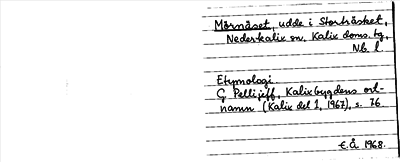 Mårnäset, udde i Storträsket,
Neder-kalix sn. Kalix doms. tg,
Nb. l.
Etymologi
G Pellijeff, Kalixbygdens ort-
namn (Kalix del 1, 1967), s. 76
E.Å. 1968.